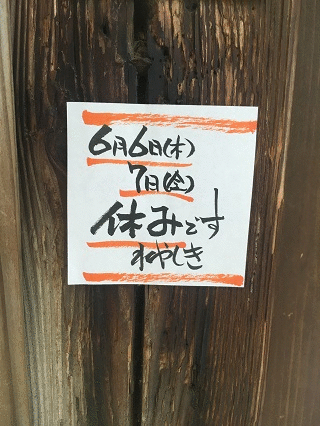 6月6日(木)
7日(金)
休みです
ねやしき